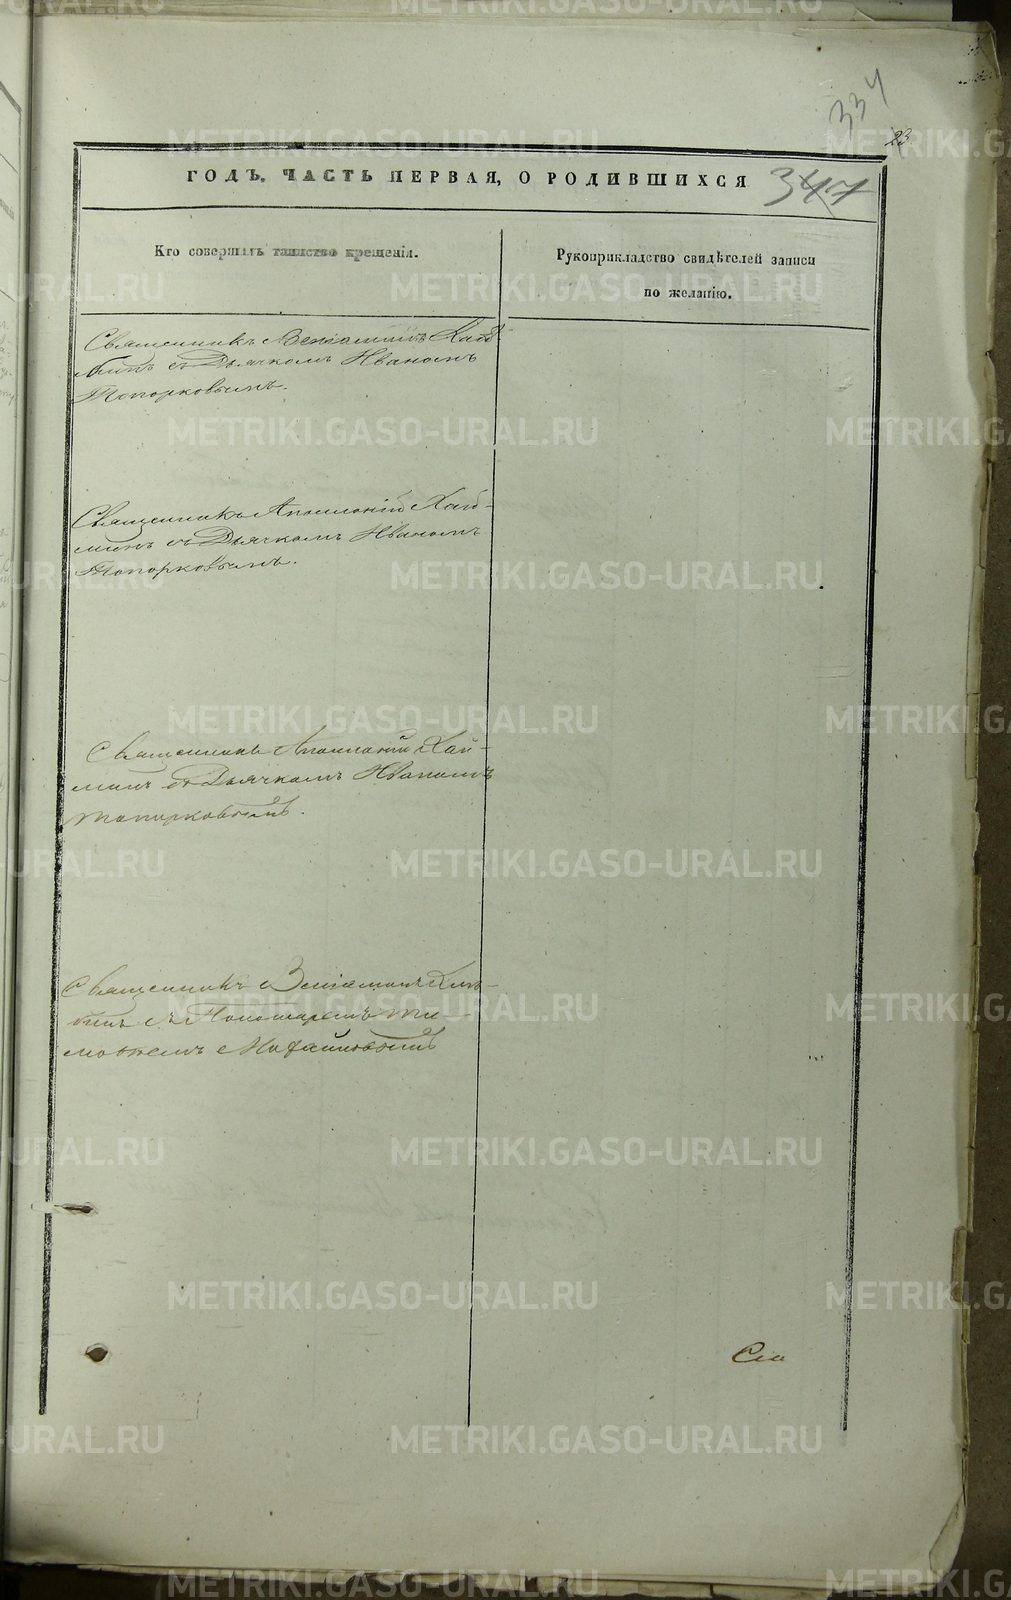 334
23
ГОДЪ. ЧАСТЬ ПЕРВАЯ, О РОДИВШИХСЯ
347
Кто совершалъ таинство крещенія.
Рукоприкладство свидѣтелей записи
по желанію.
Священникъ Веніаминъ
съ Дьячкомъ Иваномъ
Топорковымъ.
Священникъ Аполлоній Хай-
минъ съ Дьячкомъ Иваномъ
Топорковымъ.
Священникъ Аполлоній Хай-
минъ съ Дьячкомъ Иваномъ
Топорковымъ.
Священникъ Веніаминъ
съ Пономаремъ Ти-
мофеемъ
METRIKI.GASO-URAL.RU